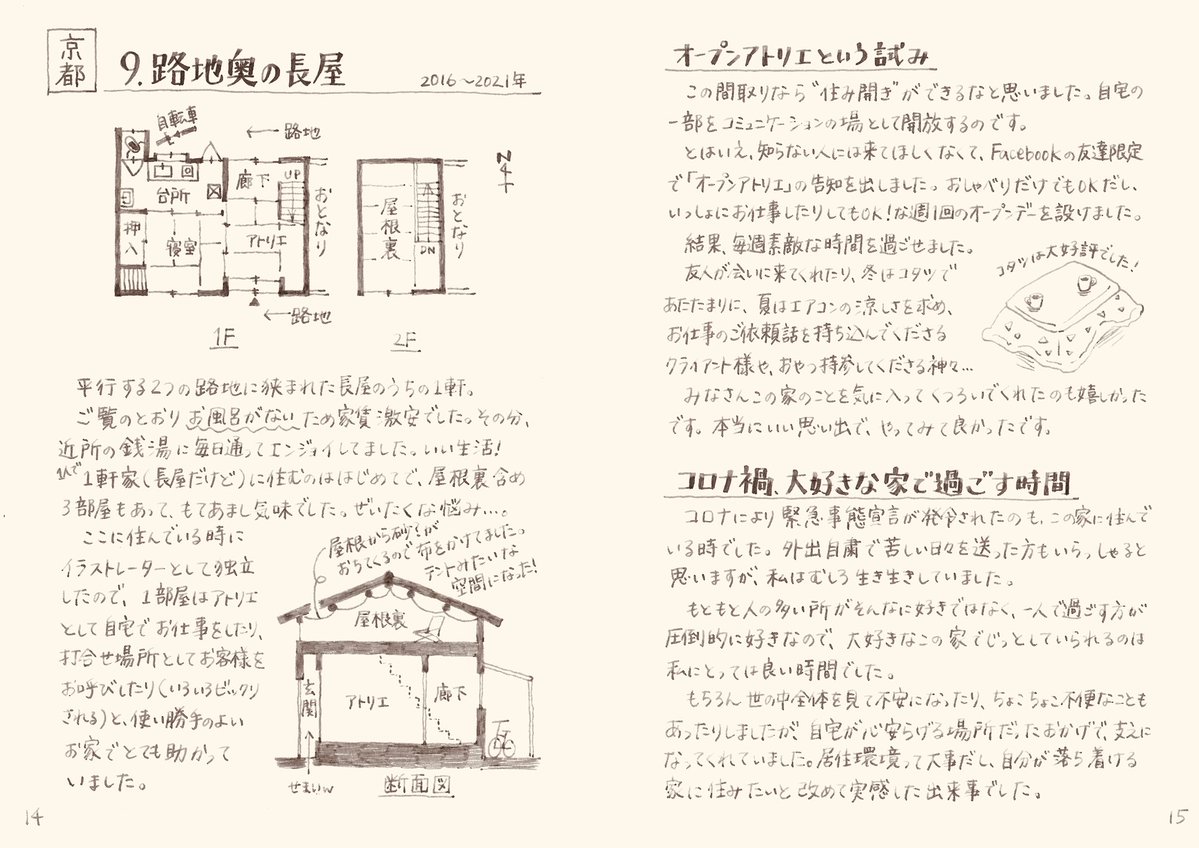 京都
9. 路地奥の長屋
2016〜2021年
自転車
←路地
台所
廊下
UP
おとなり
押入
寝室
アトリエ
←路地
1F
屋根裏
DN
おとなり
2F
N
平行する2つの路地に狭まれた長屋のうちの1軒。
ご覧のとおりお風呂がないため家賃激安でした。その分、
近所の銭湯に毎日通ってエンジョイしてました。いい生活!
1人で1軒家(長屋だけど)に住むのははじめてで、屋根裏含め
3部屋もあって、もてあまし気味でした。ぜいたくな悩み…。
ここに住んでいる時に
イラストレーターとして独立
したので、1部屋はアトリエ
として自宅でお仕事をしたり、
打合せ場所としてお客様を
お呼びしたり(いろいろビックリ
される)と、使い勝手のよい
お家でとても助かって
いました。
屋根から砂とかが
おちてくるので布をかけてました。
テントみたいな
空間になった!
屋根裏
玄関
アトリエ
廊下
せまいw
断面図
14
オープンアトリエという試み
この間取りなら“住み開き”ができるなと思いました。自宅の
一部をコミュニケーションの場として開放するのです。
とはいえ、知らない人には来てほしくなくて、Facebookの友達限定
で「オープンアトリエ」の告知を出しました。おしゃべりだけでもOKだし、
いっしょにお仕事したりしてもOK!な週1回のオープンデーを設けました。
結果、毎週素敵な時間を過ごせました。
友人が会いに来てくれたり、冬はコタツで
あたたまりに、夏はエアコンの涼しさを求め、
お仕事のご依頼話を持ち込んでくださる
クライアント様や、おやつ持参してくださる神々…
みなさんこの家のことを気に入ってくつろいでくれたのも嬉しかった
です。本当にいい思い出で、やってみて良かったです。
コタツは大好評でした!
コロナ禍、大好きな家で過ごす時間
コロナにより緊急事態宣言が発令されたのも、この家に住んで
いる時でした。外出自粛で苦しい日々を送った方もいらっしゃると
思いますが、私はむしろ生き生きしていました。
もともと人の多い所がそんなに好きではなく、一人で過ごす方が
圧倒的に好きなので、大好きなこの家でじっとしていられるのは
私にとっては良い時間でした。
もちろん世の中全体を見て不安になったり、ちょこちょこ不便なことも
あったりしましたが、自宅が心安らげる場所だったおかげで、支えに
なってくれていました。居住環境って大事だし、自分が落ち着ける
家に住みたいと改めて実感した出来事でした。
15